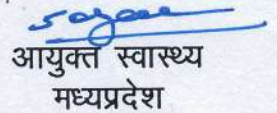 आयुक्त स्वास्थ्य
मध्यप्रदेश